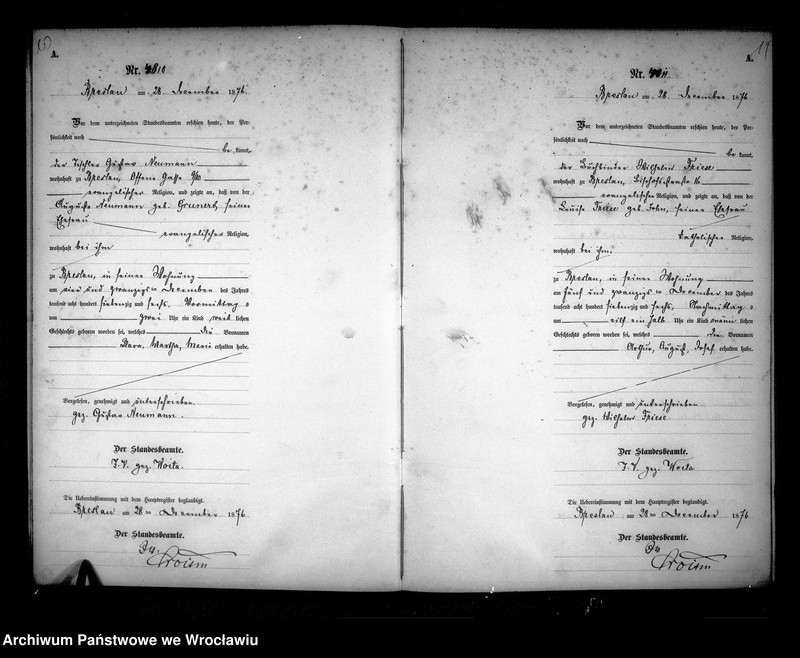 A.
Nr. 4810
Breslau am 28. December 1876.
Vor dem unterzeichneten Standesbeamten erschien heute, der Per-
sönlichkeit nach
be kannt,
der Tischler Gustav Neumann
wohnhaft zu Breslau, Offene Gasse
evangelischer Religion, und zeigte an, daß von der
Auguste Neumann geb. Grunert, seiner
Ehefrau
evangelischer Religion,
wohnhaft bei ihm
zu Breslau, in seiner Wohnung
am vier und zwanzigsten December des Jahres
tausend acht hundert siebenzig und sechs, Vormittags
um zwei Uhr ein Kind weib lichen
Geschlechts geboren worden sei, welches die Vornamen
Clara, Martha, Marie erhalten habe.
Vorgelesen, genehmigt und unterschrieben
gez. Gustav Neumann.
Der Standesbeamte.
I. V. gez. Woita.
Die Uebereinstimmung mit dem Hauptregister beglaubigt.
Breslau am 28 ten December 1876
Der Standesbeamte.
A.
Nr. 4811
Breslau am 28. December 1876
Vor dem unterzeichneten Standesbeamten erschien heute, der Per-
sönlichkeit nach
be kannt,
der Buchbinder Wilhelm Friese
wohnhaft zu Breslau, Bischofstraße 16
evangelischer Religion, und zeigte an, daß von der
Louise Friese geb. John, seiner Ehefrau
katholischer Religion,
wohnhaft bei ihm,
zu Breslau, in seiner Wohnung
am fünf und zwanzigsten December des Jahres
tausend acht hundert siebenzig und sechs, Nachmittags
um eilf ein halb Uhr ein Kind männ lichen
Geschlechts geboren worden sei, welches die Vornamen
Arthur, August, Josef erhalten habe.
Vorgelesen, genehmigt und unterschrieben
gez. Wilhelm Friese.
Der Standesbeamte.
I. V. gez. Woita
Die Uebereinstimmung mit dem Hauptregister beglaubigt.
Breslau am 28 ten December 1876
Der Standesbeamte.
Archiwum Państwowe we Wrocławiu